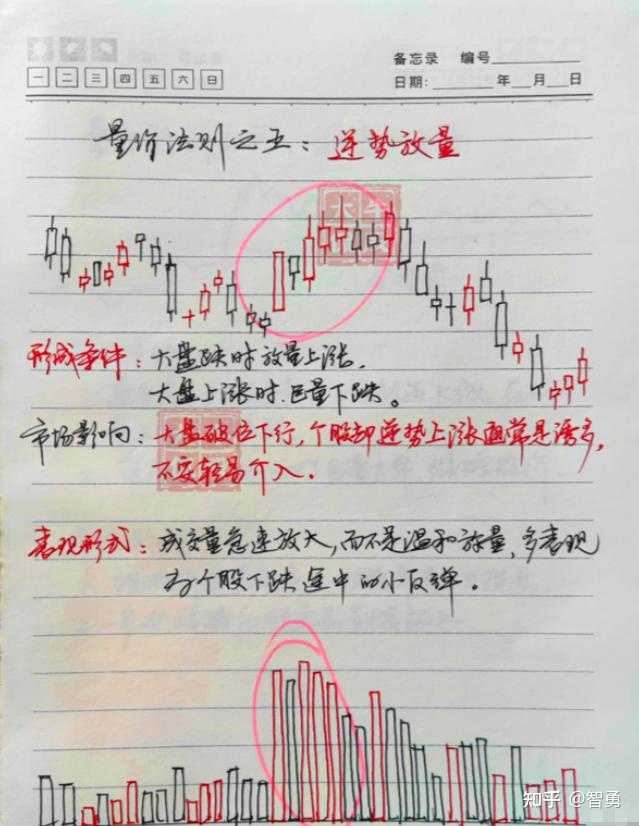 备忘录 编号
一 二 三 四 五 六 日
日期： 年 月 日
量价法则之五：逆势放量
形成条件：大盘跌时放量上涨，
大盘上涨时，巨量下跌。
市场影响：大盘破位下行，个股却逆势上涨通常是诱多，
不要轻易介入。
表现形式：成交量急速放大，而不是温和放量，多表现
为个股下跌途中的小反弹。
知乎 @智勇